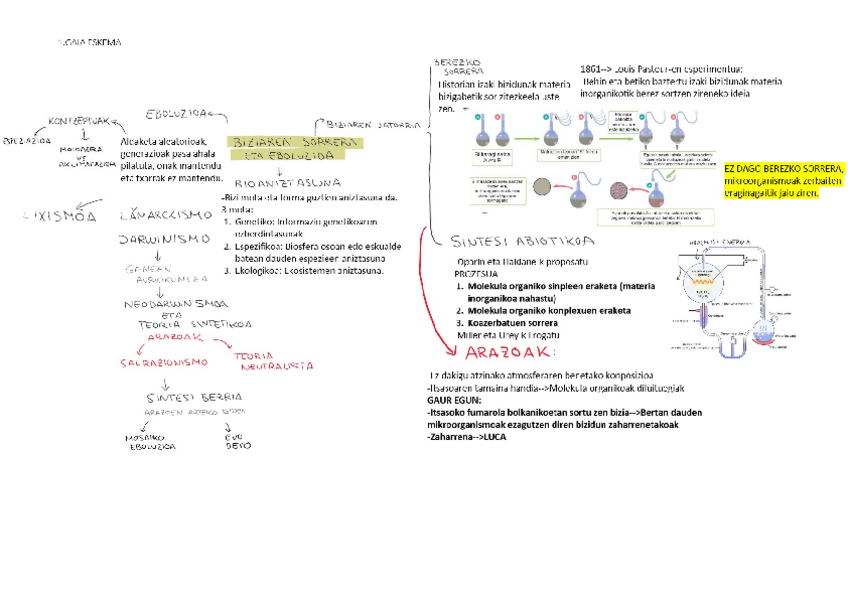 1.GAIA ESKEMA
BEREZKO
SORRERA
Historian izaki bizidunak materia
bizigabetik sor zitezkeela uste
zen.
1861--> Louis Pasteur-en esperimentua:
Behin eta betiko baztertu izaki bizidunak materia
inorganikotik berez sortzen zireneko ideia
EZ DAGO BEREZKO SORRERA,
mikroorganismoak zerbaiten
eraginagaitik jaio ziren.
EBOLUZIOA
KONTZEPTUAK
ESPEZIAZIOA
MOLDAERA
AKLIMATAZIOA
Aldaketa aleatorioak,
generazioak pasa ahala
pilatuta, onak mantendu
eta txarrak ez mantendu.
BIZIAREN SORRERA
ETA EBOLUZIOA
BIZIAREN JATORRIA
BIOANIZTASUNA
-Bizi mota eta forma guztien aniztasuna da.
3 mota:
1. Genetiko: Informazio genetikoaren
ezberdintasunak
2. Espezifikoa: Biosfera osoan edo eskualde
batean dauden espezieen aniztasuna
3. Ekologikoa: Ekosistemen aniztasuna.
FIXISMOA
LAMARCKISMO
DARWINISMO
GENEEN
NEODARWINISMOA
ETA
TEORIA SINTETIKOA
ARAZOAK
SALTAZIONISMO
TEORIA
NEUTRALISTA
SINTESI BERRIA
MOSAIKO
EBOLUZIOA
EVO
DEVO
SINTESI ABIOTIKOA
Oparin eta Haldane k proposatu
PROZESUA
1. Molekula organiko sinpleen eraketa (materia
inorganikoa nahastu)
2. Molekula organiko konplexuen eraketa
3. Koazerbatuen sorrera
Miller eta Urey k frogatu
ARAZOAK:
-Ez dakigu atzinako atmosferaren benetako konposizioa
-Itsasoaren tamaina handia-->Molekula organikoak diluituegiak
GAUR EGUN:
-Itsasoko fumarola bolkanikoetan sortu zen bizia-->Bertan dauden
mikroorganismoak ezagutzen diren bizidun zaharrenetakoak
-Zaharrena-->LUCA